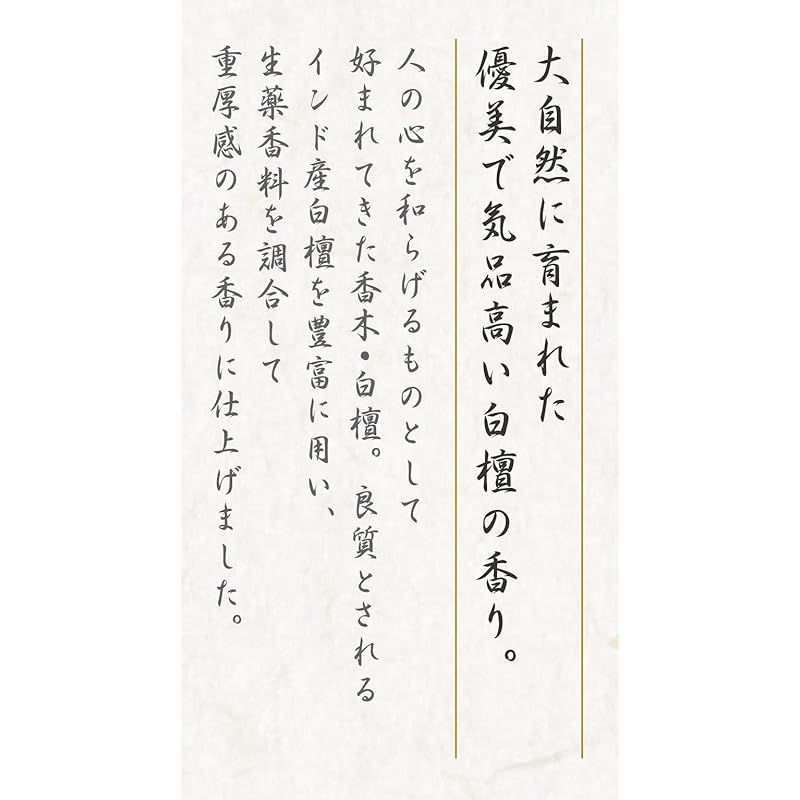 大自然に育まれた
優美で気品高い白檀の香り。
人の心を和らげるものとして
好まれてきた香木・白檀。良質とされる
インド産白檀を豊富に用い、
生薬香料を調合して
重厚感のある香りに仕上げました。